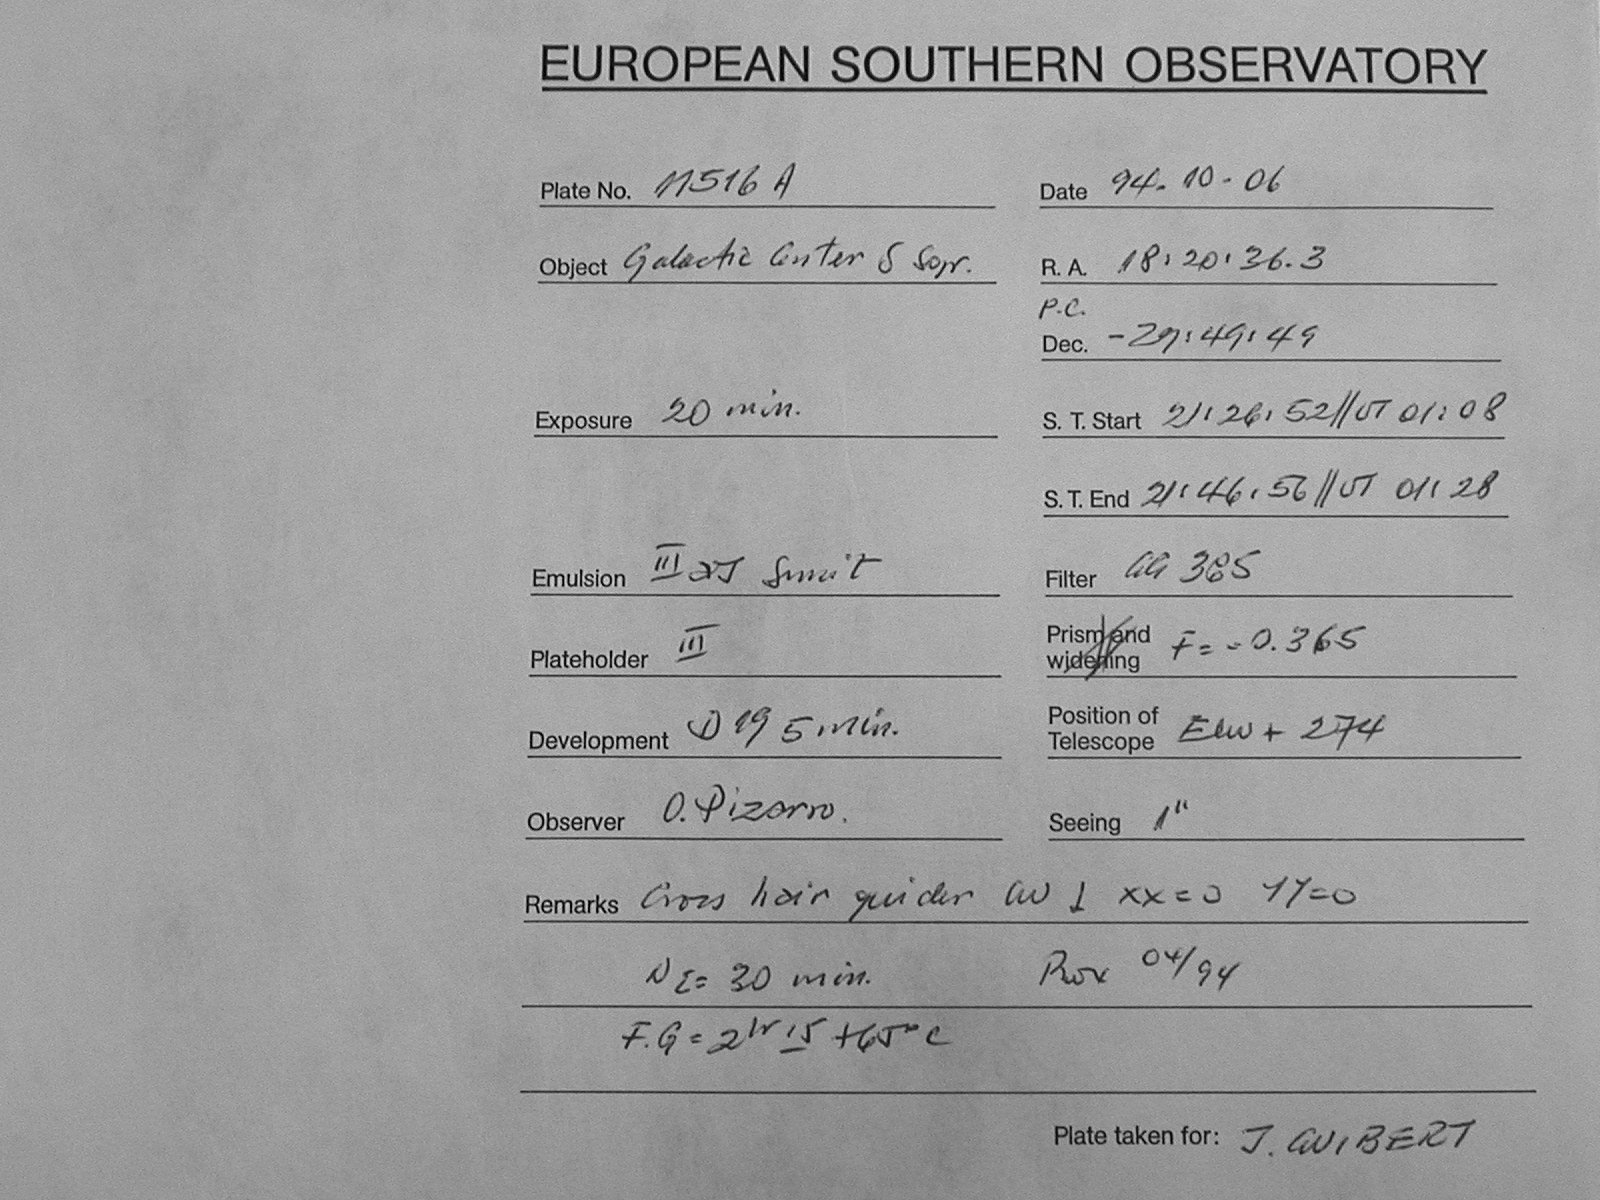 EUROPEAN SOUTHERN OBSERVATORY
Plate No. 11516 A Date 94-10-06
Object Galactic Center S R. A. 18:20:36.3
P.C.
Dec. -29:49:49
Exposure 20 min. S. T. Start 21:26:52//UT 01:08
S. T. End 21:46:56//UT 01:28
Emulsion III aJ Filter GG 385
Plateholder III Prism and widening F= -0.365
Development D 19 5 min. Position of Telescope + 274
Observer O. Pizarro. Seeing 1"
Remarks Cross hair guider xx=0 YY=0
N2= 30 min. 04/94
F.G = 2hr 15 +65°C
Plate taken for: J. GUIBERT